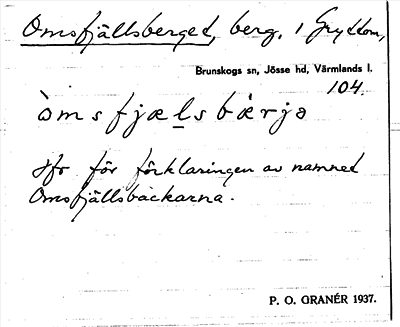 Omsfjällsberget, berg, i Gryttom,
Brunskogs sn, Jösse hd, Värmlands l.
104.
ò̀msfjæl̠sbæ̀rjə
Jfr för förklaringen av namnet
Omsfjällsbäckarna.
P. O. GRANÉR 1937.